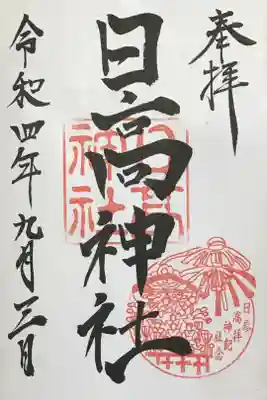 奉拝
日高神社
令和四年九月三日
日高神社